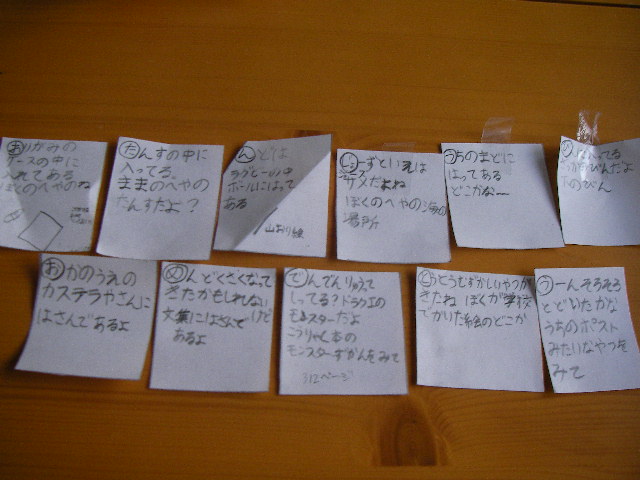 おりがみの
ケースの中に
入れてある
ぼくのへやのね
たんすの中に
入ってる。
ままのへやの
たんすだよ?
んどうは
ラグビーの
ボールにはって
ある
山おり線
じょーずといえば
サメだよね
ぼくのへやの海の
場所
うちのまどに
はってある
どこかなー
びんだよ
のびん
おかのうえの
カステラやさんに
はさんであるよ
めんどくさくなって
きたかもしれない
けど
文集にはさんで
あるよ
でんでんりゅうって
しってる?ドラクエの
モンスターだよ
こうりゃく本の
モンスターずかんをみて
312ページ
とうとうむずかしいやつが
きたね ぼくが学校
でかいた絵のどこか
うーんそろそろ
とどいたかな
うちのポスト
みたいなやつを
みて